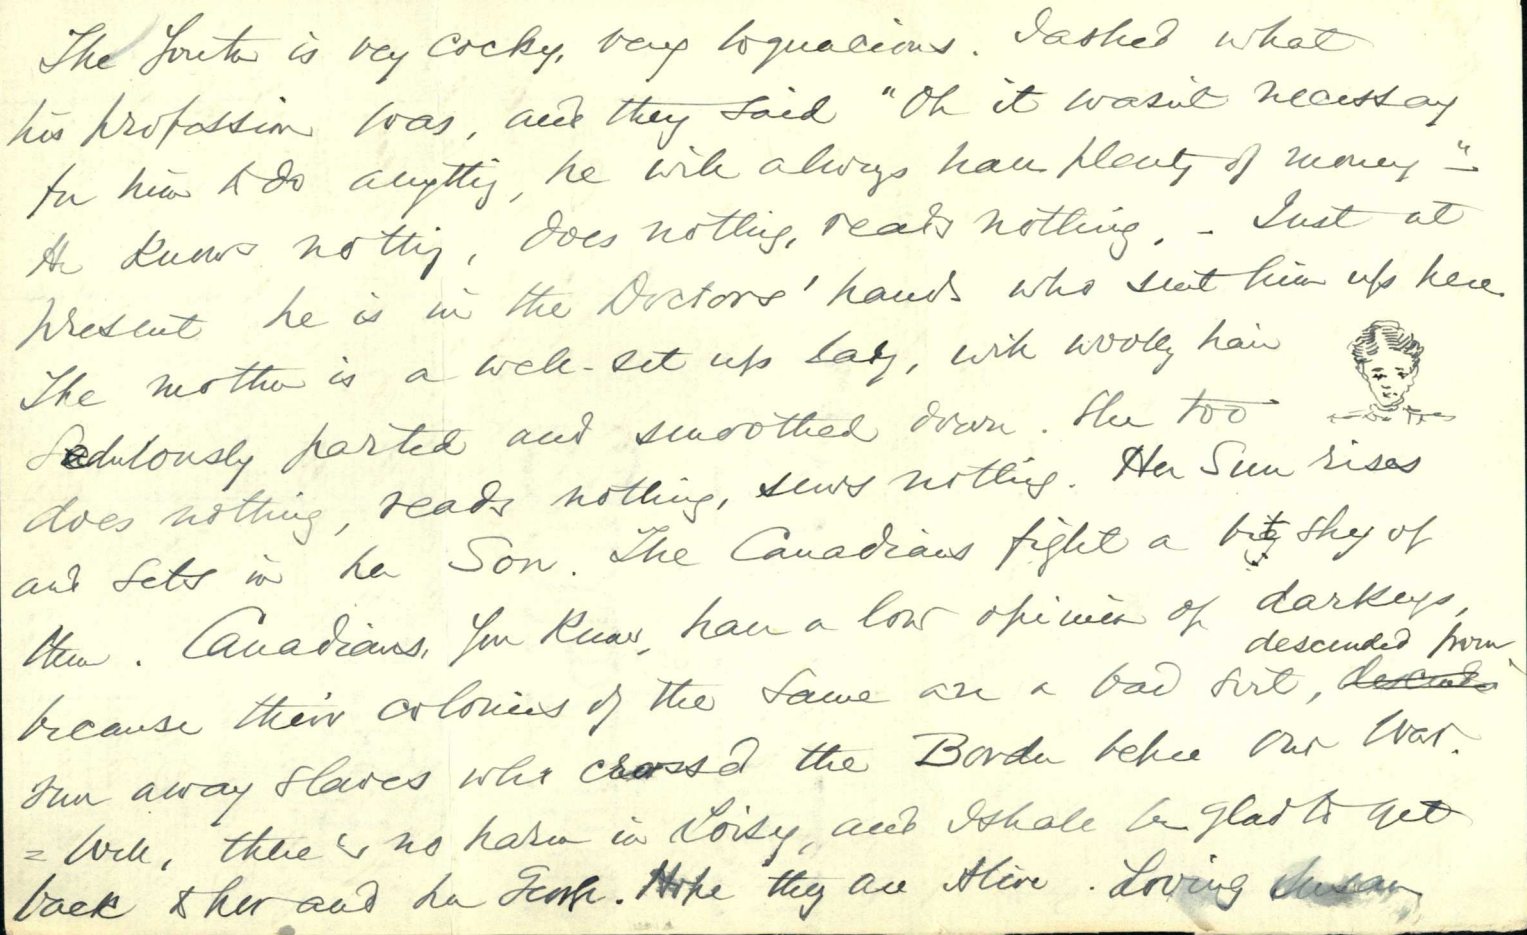 The Youth is very cocky, very loquacious. I asked what
his profession was, and they said "Oh it wasn't necessary
for him to do anything, he will always have plenty of money" -
He knows nothing, does nothing, reads nothing. - Just at
present he is in the Doctors' hands who sent him up here.
The mother is a well-set up lady, with woolly hair
Sedulously parted and smoothed down. She too
does nothing, reads nothing, sews nothing. Her Sun rises
and sets in her Son. The Canadians fight a bit shy of
them. Canadians, you know, have a low opinion of darkeys,
because their colonies of the same are a bad sort, descended from
run away slaves who crossed the Border before our War.
= Well, there is no harm in Loisy, and I shall be glad to get
back to her and her . Hope they are Alive. Loving Susan